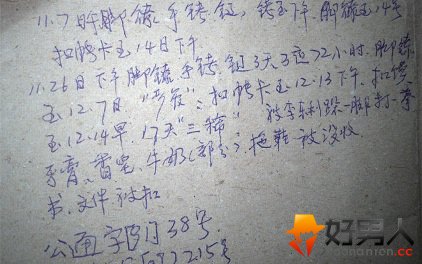 11.7日下午脚镣手铐 链, 铐至下午, 脚镣至14号
扣帐卡至14日下午
11.26日下午脚镣手铐. 链3天3夜72小时. 脚镣
至12.7日 扣帐卡至12.13下午. 扣
至12.14早. 17天"三稀" 被李 一脚打一拳
牙膏、香皂、牛奶(部分)、拖鞋被没收
书. 文件被扣
公通字 38号
好男人
haonanren.cc